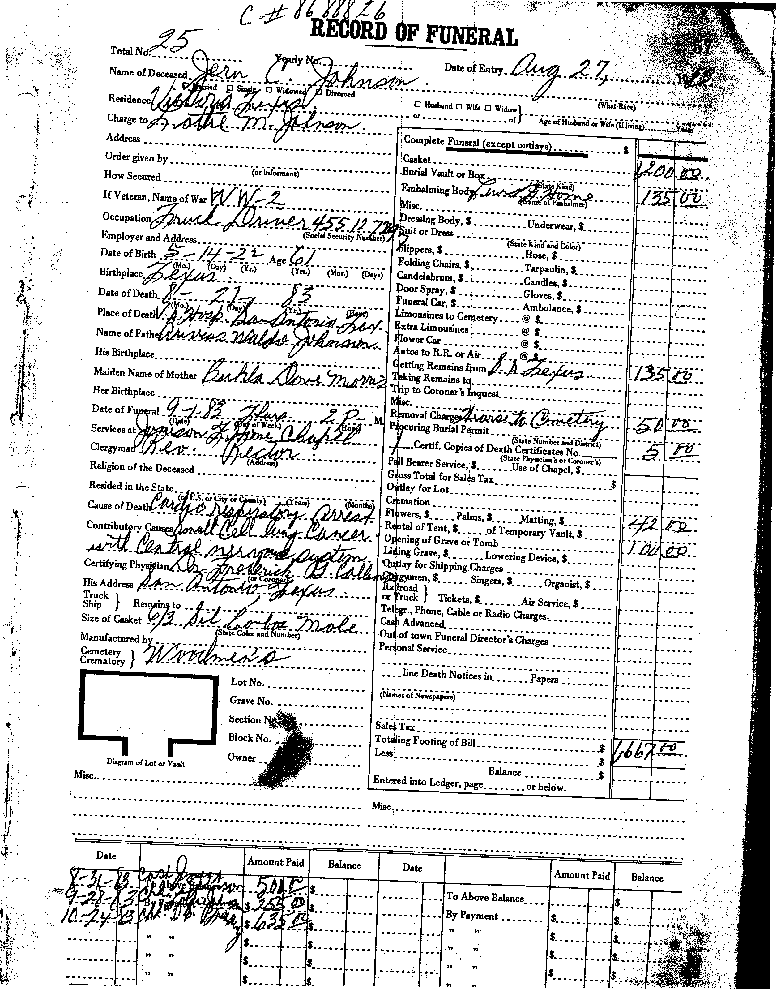 C # 8688826
RECORD OF FUNERAL
Total No. 25
Yearly No.
Date of Entry Aug 27,
Name of Deceased Johnson
Married □ Single □ Widowed □ Divorced
Residence Texas
□ Husband □ Wife □ Widow
or of
(What Race)
Age of Husband or Wife (if living) Years
Charge to M. Johnson
Address
Order given by
(or Informant)
How Secured
If Veteran, Name of War WW-2
Occupation Truck Driver 455.12.
Employer and Address
(Social Security Number)
Date of Birth 5-14-22 Age 61
(Mo.) (Day) (Yr.) (Yrs.) (Mos.) (Days)
Birthplace Texas
Date of Death 8- 27 83
(Mo.) (Day)
Place of Death V.A. Hosp. San Antonio Tex.
Name of Father Waldo Johnson
His Birthplace
Maiden Name of Mother
Her Birthplace
Date of Funeral 9-1-83 Thurs. 2 P. M.
(Date) (Day of Week) (Hour)
Services at Home Chapel
Clergyman Rev. Rector
(Address)
Religion of the Deceased
Resided in the State
(or U.S. or City or County) (Years) (Months)
Cause of Death Cardio respiratory arrest
Contributory Causes Small Cell lung Cancer
with Central nervous system
Certifying Physician Dr. Frederick
(or Coroner)
His Address San Antonio, Texas
Truck
Ship } Remains to
Size of Casket 6/3 Sil
(State Color and Number)
Manufactured by
Cemetery
Crematory } Woodmen's
Lot No.
Grave No.
Section No.
Block No.
Owner
Diagram of Lot or Vault
Misc.
Complete Funeral (except outlays) $
Casket
Burial Vault or Box 1200.00
(State Kind)
Embalming Body Home 135.00
(Name of Embalmer)
Misc.
Dressing Body, $ Underwear, $
Suit or Dress
(State Kind and Color)
Slippers, $ Hose, $
Folding Chairs, $ Tarpaulin, $
Candelabrum, $ Candles, $
Door Spray, $ Gloves, $
Funeral Car, $ Ambulance, $
Limousines to Cemetery @ $
Extra Limousines @ $
Flower Car @ $
Autos to R.R. or Air @ $
Getting Remains from S.A. Texas 135.00
Taking Remains to
Trip to Coroner's Inquest
Misc.
Removal Charges Hearse to Cemetery 50.00
Procuring Burial Permit
(State Number and District)
1 Certif. Copies of Death Certificates No. 5.00
(State Physician's or Coroner's)
Pall Bearer Service, $ Use of Chapel, $
Gross Total for Sales Tax $
Outlay for Lot
Cremation
Flowers, $ Palms, $ Matting, $ 42.00
Rental of Tent, $ of Temporary Vault, $
Opening of Grave or Tomb 100.00
Lining Grave, $ Lowering Device, $
Outlay for Shipping Charges
Clergymen, $ Singers, $ Organist, $
Railroad
or Truck } Tickets, $ Air Service, $
Telegr., Phone, Cable or Radio Charges
Cash Advanced
Out of town Funeral Director's Charges
Personal Service
Line Death Notices in Papers
(Names of Newspapers)
Sales Tax
Totaling Footing of Bill $ 1,667.00
Less $
Balance $
Entered into Ledger, page or below.
Misc.
Date Amount Paid Balance Date Amount Paid Balance
8-31-83 500.00 $ To Above Balance $
9-28-83 $ By Payment $ $
10-24-83 $ $ " " $ $
" " $ $ " " $ $
" " $ $ " " $ $
" " $ $ " " $ $